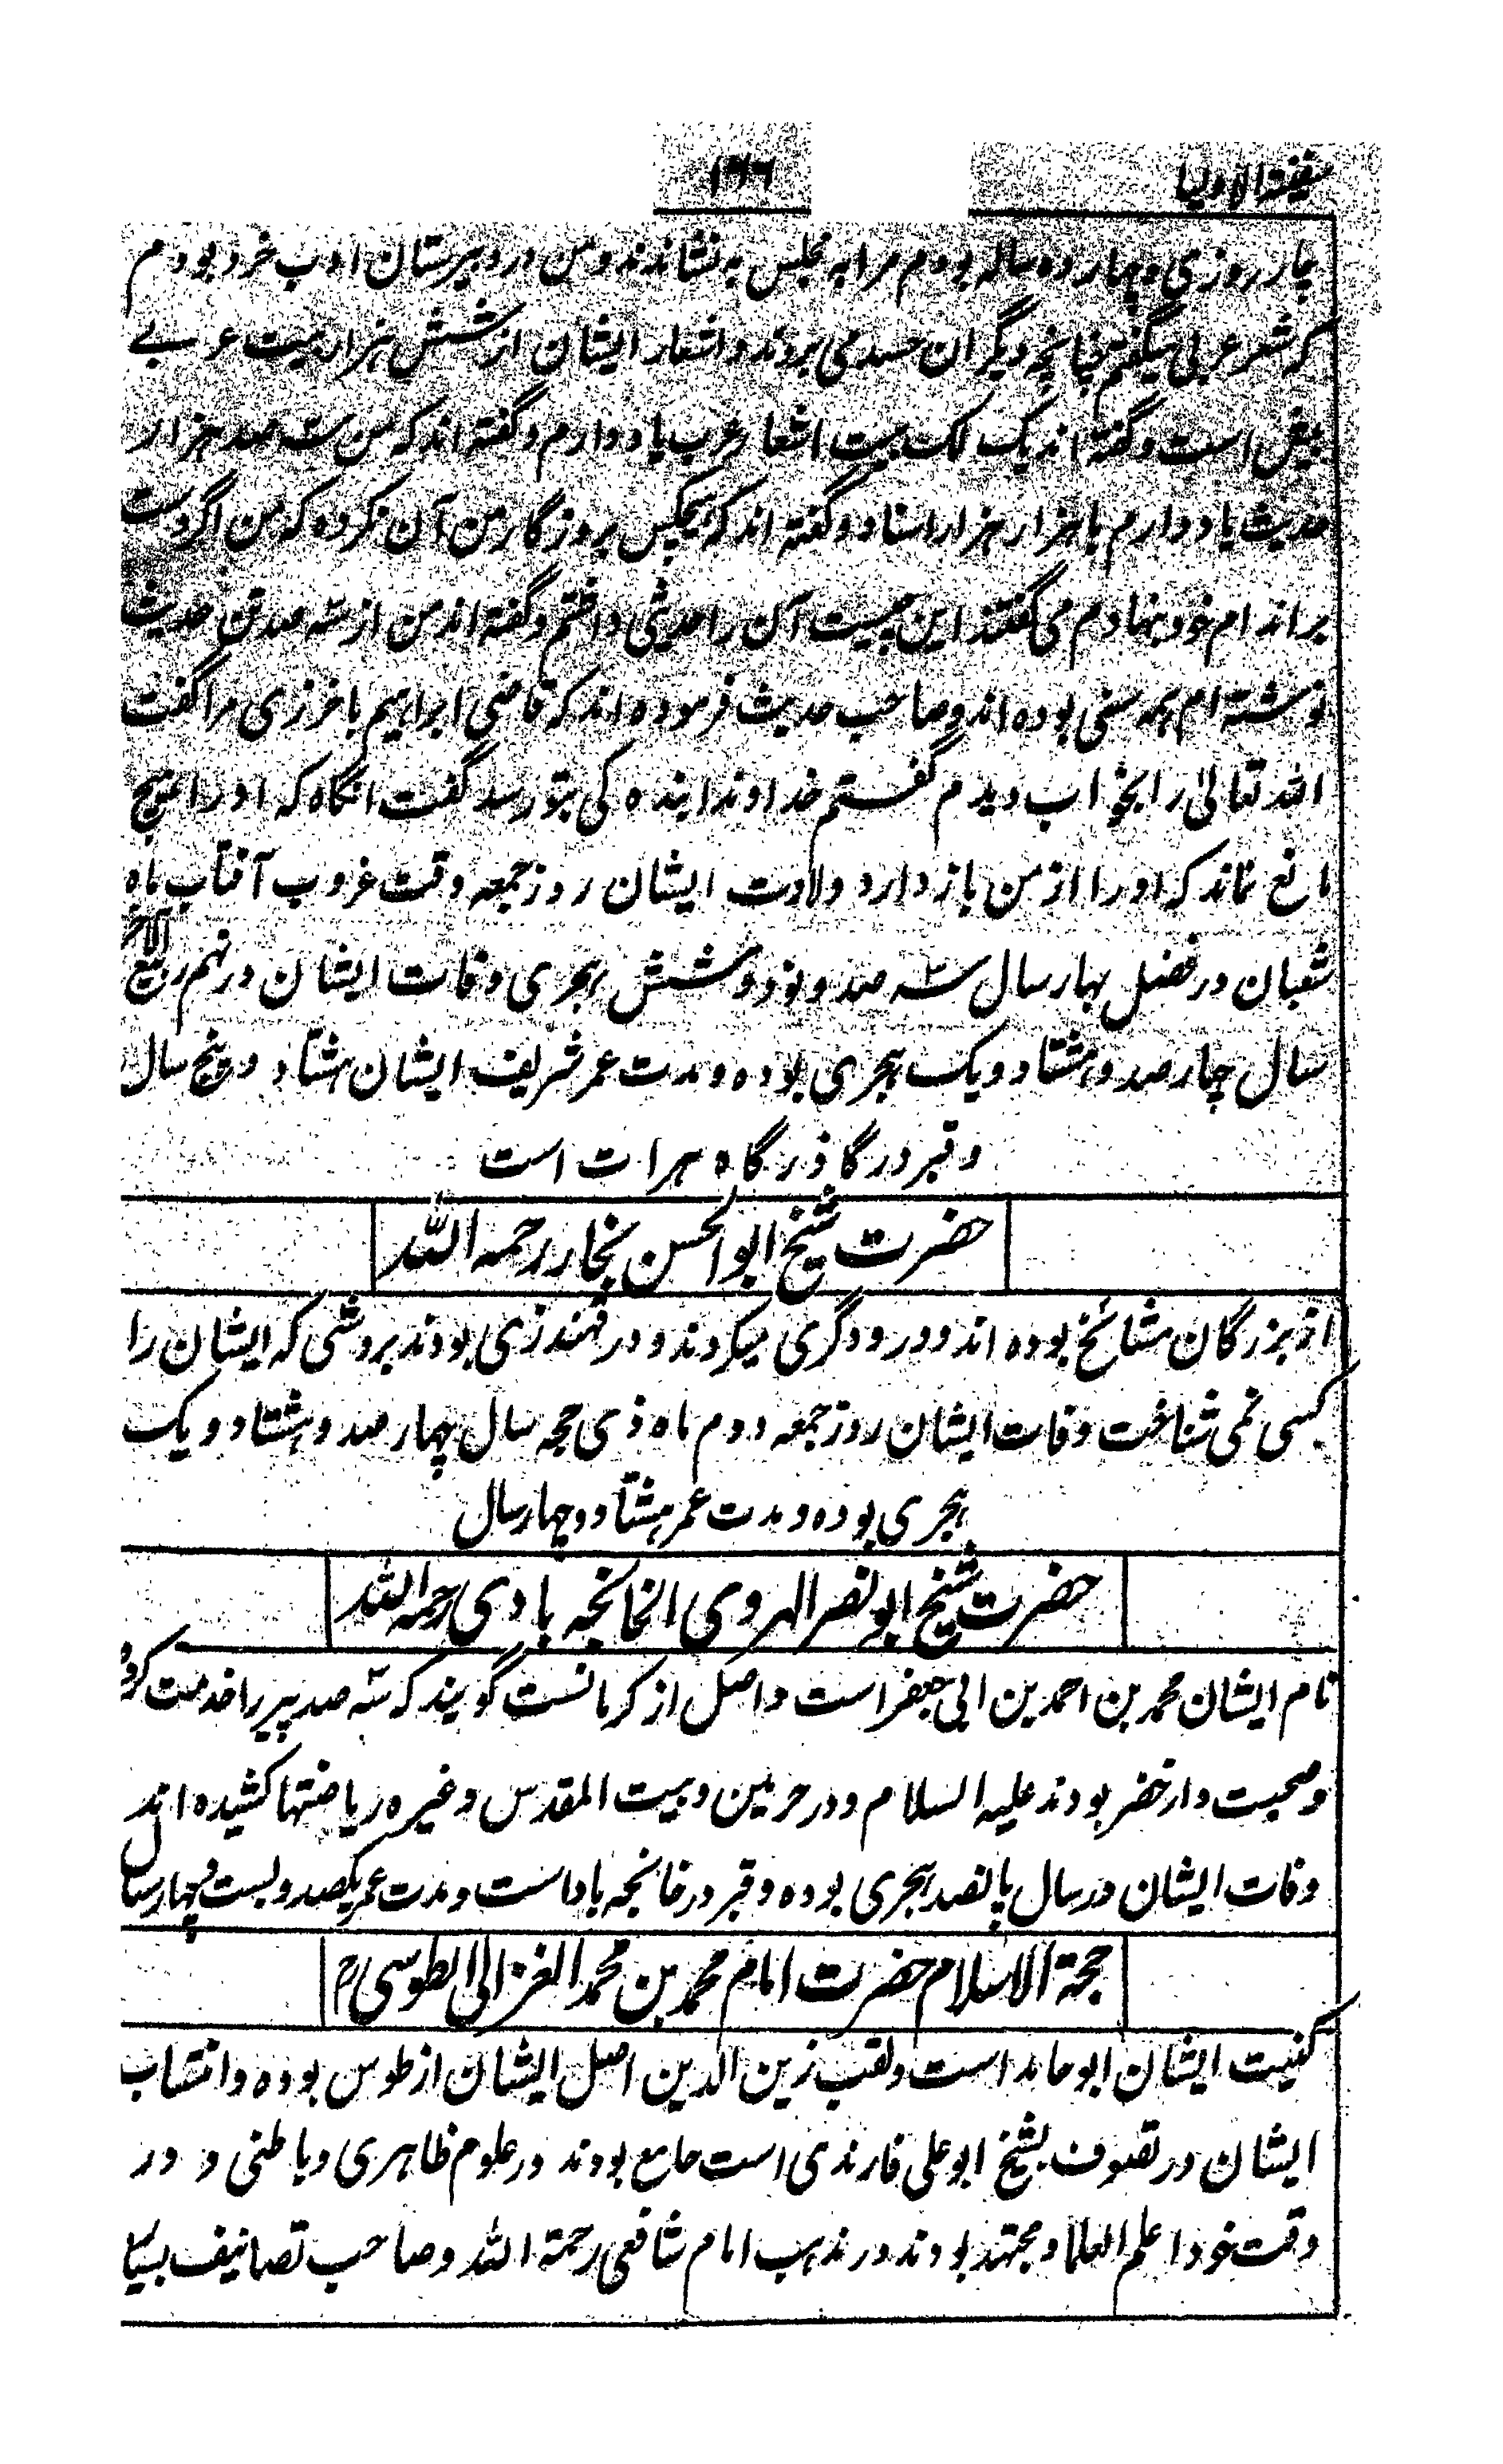 سفینة الاولیا
۱۶۶
چار روزی و چهارده ساله بودم مرا به مجلس به نشاندند و من در دبیرستان ادب خرد بودم
که شعر عربی میگفتم چنانچه دیگران حسد می بردند و اشعار ایشان از شش هزار بیت عربے
بیش است و گفته اند یک لک بیت اشعار عرب یاد دارم و گفته اند که من سه صد هزار
حدیث یاد دارم با هزار هزار اسناد و گفته اند که هیچکس بروزگار من آن نکرده که من اگر دست
بر اندام خود بنهادم می گفتند این چیست آن را حدیثی داشتم و گفته اند من از سه صد تن حدیث
نوشته ام همه سنی بوده اند و صاحب حدیث فرموده اند که قاضی ابراهیم باخرزی مرا گفت
الله تعالیٰ را بخواب دیدم گفتم خداوندا بنده کی بتو رسد گفت انگاه که او را هیچ
مانع نماند که او را از من باز دارد ولادت ایشان روز جمعه وقت غروب آفتاب ماه
شعبان در فصل بهار سال سه صد و نود و شش هجری وفات ایشان در نهم ربیع الآخر
سال چهار صد و هشتاد و یک هجری بوده و مدت عمر شریف ایشان هشتاد و پنج سال
و قبر در گاذرگاه هرات است
حضرت شیخ ابو الحسن نجار رحمه الله
از بزرگان مشائخ بوده اند و درودگری میکردند و در قهندزی بودند بروشی که ایشان را
کسی نمی شناخت وفات ایشان روز جمعه دوم ماه ذی حجه سال چهار صد و هشتاد و یک
هجری بوده و مدت عمر هشتاد و چهار سال
حضرت شیخ ابو نصر الهروی الخانجه بادی رحمه الله
نام ایشان محمد بن احمد بن ابی جعفر است و اصل از کرمانست گویند که سه صد پیر را خدمت کرده
و صحبت دار خضر بودند علیه السلام و در حرمین و بیت المقدس و غیره ریاضتها کشیده اند
وفات ایشان در سال پانصد هجری بوده و قبر در خانجه باد است و مدت عمر یکصد و بست و چهار سال
حجة الاسلام حضرت امام محمد بن محمد الغزالی الطوسی رح
کنیت ایشان ابو حامد است و لقب زین الدین اصل ایشان از طوس بوده و انتساب
ایشان در تصوف بشیخ ابو علی فارمدی است جامع بودند در علوم ظاهری و باطنی و در
وقت خود اعلم العلما و مجتهد بودند در مذهب امام شافعی رحمة الله و صاحب تصانیف بسیار